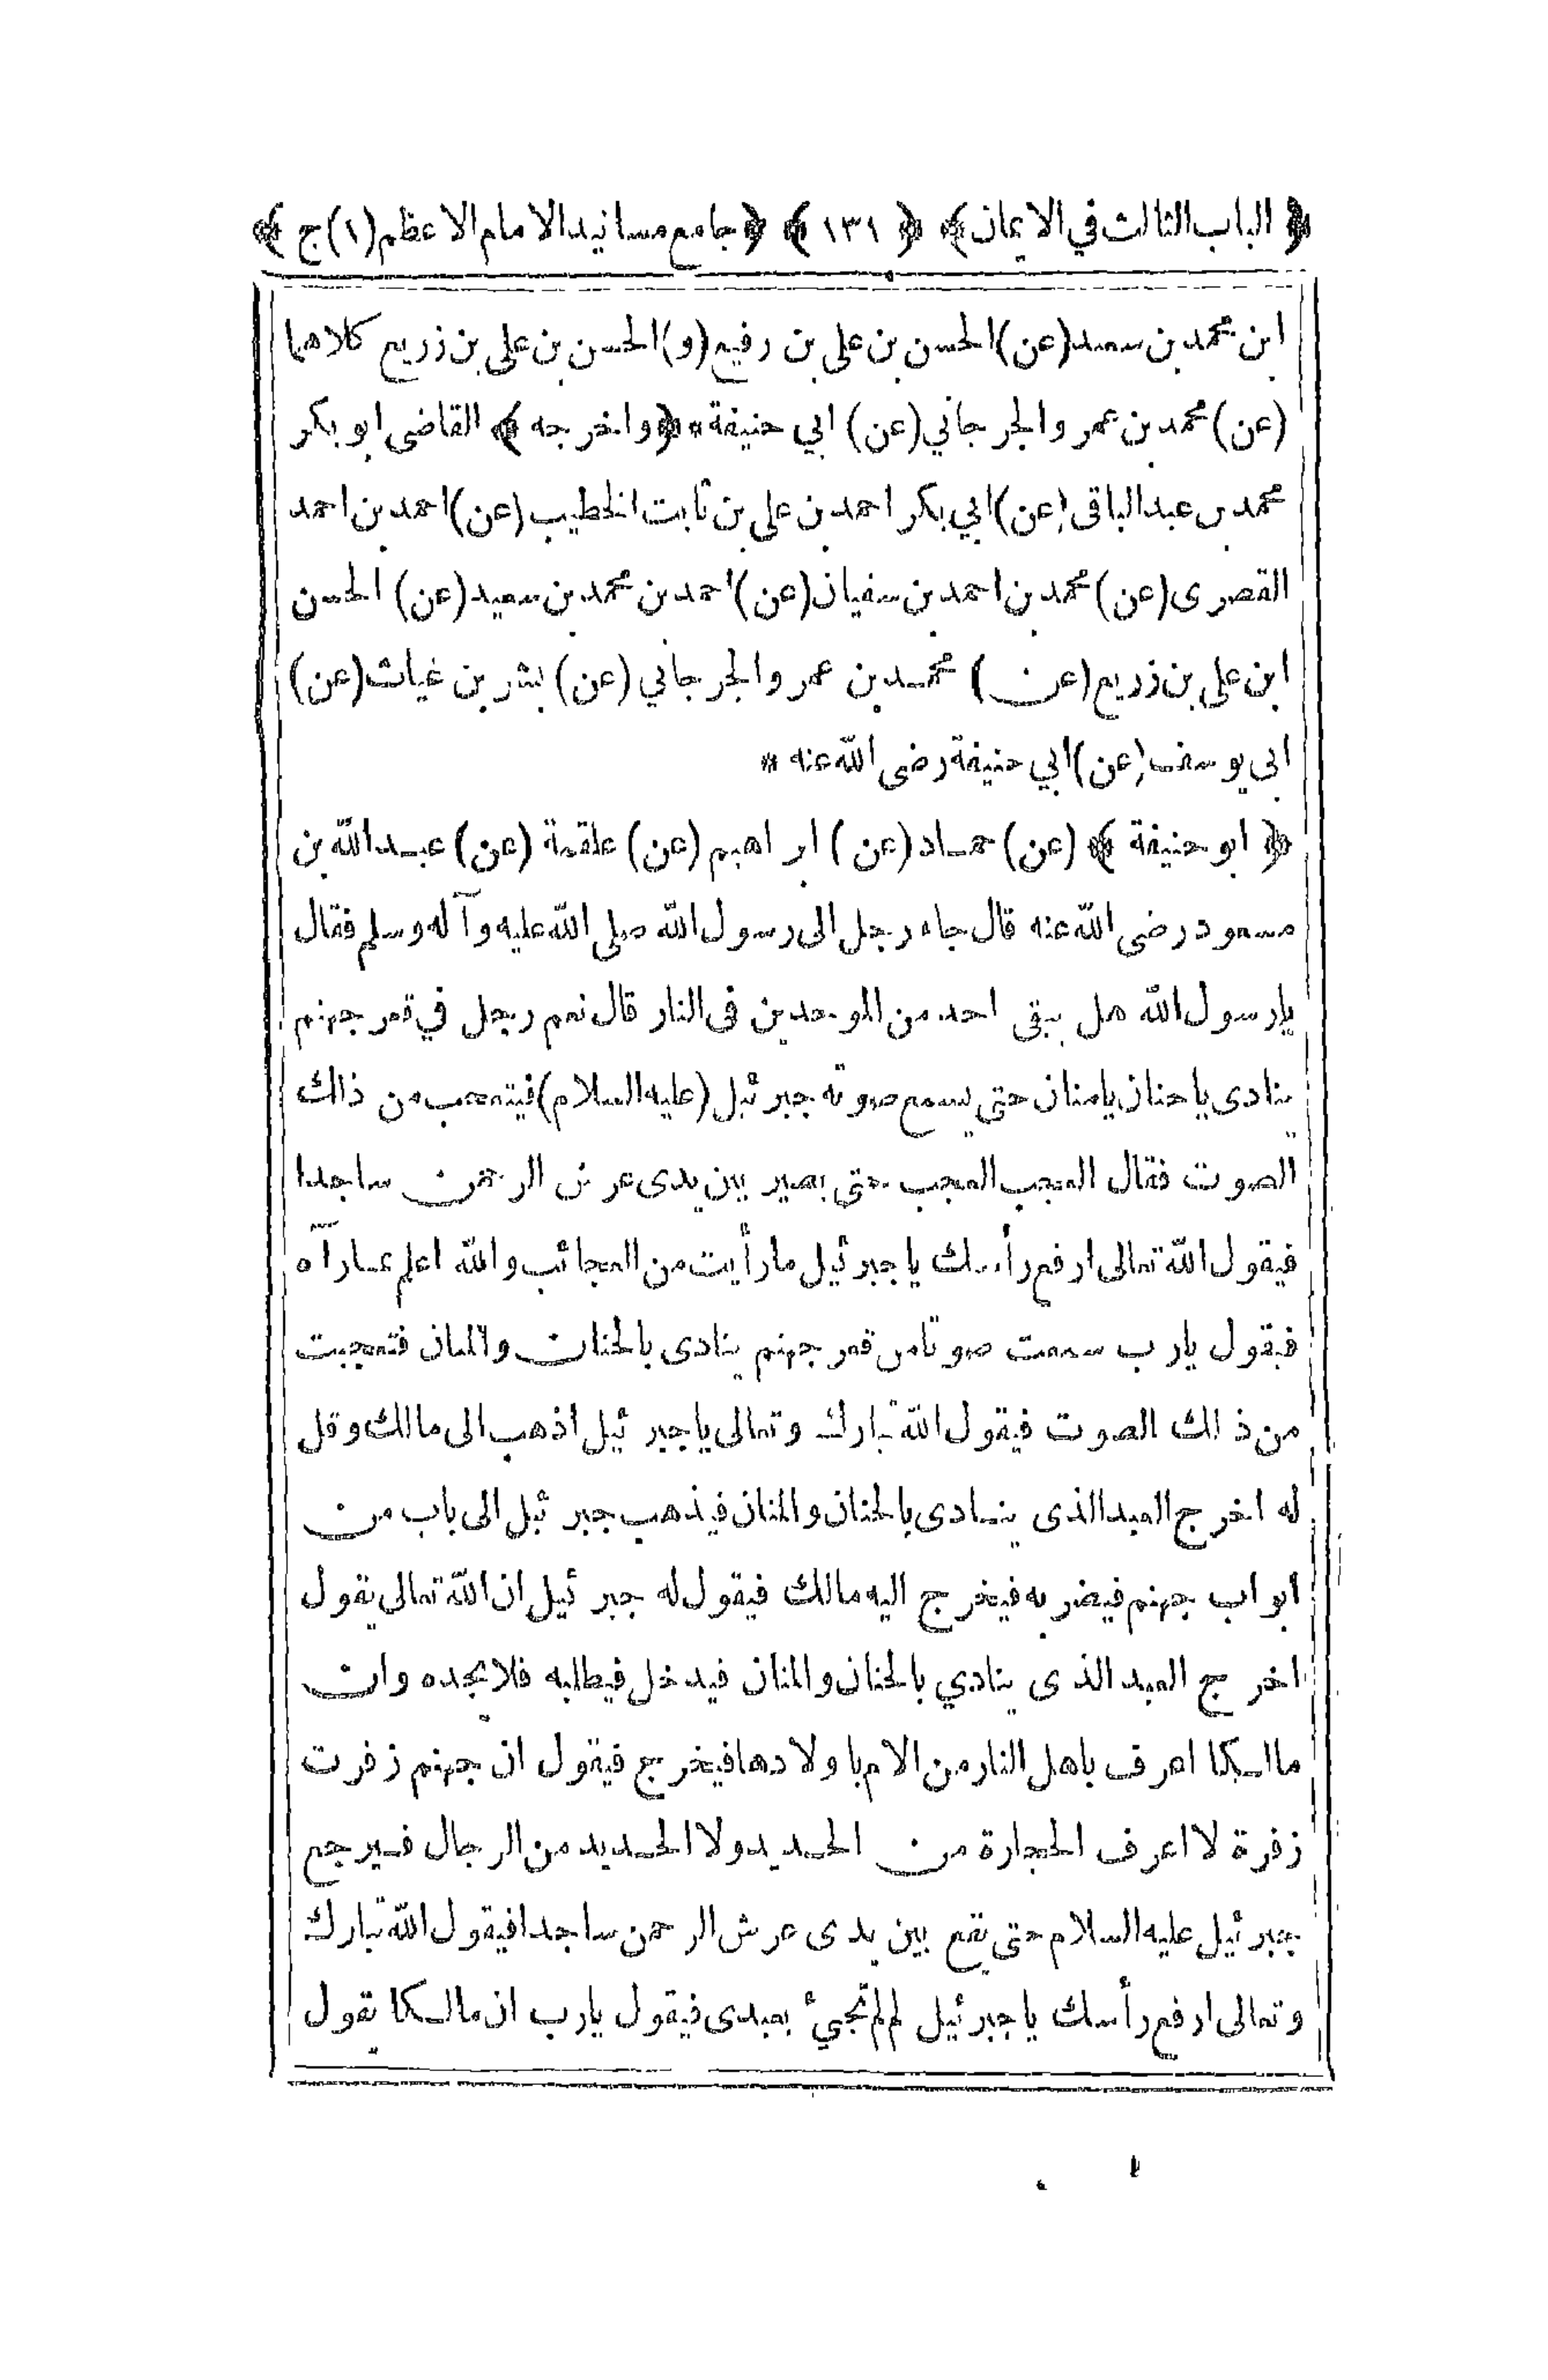 ﴿ الباب الثالث في الايمان ﴾ ﴿ ١٣١ ﴾ ﴿ جامع مسانيد الامام الاعظم (١) ج ﴾
ابن محمد بن سعيد (عن) الحسن بن على بن رفيع (و) الحسن بن على بن زريع كلاهما
(عن) محمد بن عمر و الجرجاني (عن) ابي حنيفة * ﴿ واخرجه ﴾ القاضى ابو بكر
محمد بن عبد الباقى (عن) ابي بكر احمد بن على بن ثابت الخطيب (عن) احمد بن احمد
القصرى (عن) محمد بن احمد بن سفيان (عن) احمد بن محمد بن سعيد (عن) الحسن
ابن على بن زريع (عن) محمد بن عمر والجرجاني (عن) بشر بن غياث (عن)
ابى يوسف (عن) ابي حنيفة رضى الله عنه *
﴿ ابو حنيفة ﴾ (عن) حماد (عن) ابراهيم (عن) علقمة (عن) عبد الله بن
مسعود رضى الله عنه قال جاء رجل الى رسول الله صلى الله عليه وآله وسلم فقال
يارسول الله هل يبقى احد من الموحدين فى النار قال نعم رجل في قعر جهنم
ينادى ياحنان يامنان حتى يسمع صوته جبرئيل (عليه السلام) فيتعجب من ذلك
الصوت فقال العجب العجب حتى يصير بين يدى عرش الرحمن ساجدا
فيقول الله تعالى ارفع رأسك ياجبرئيل مارأيت من العجائب والله اعلم بما رآه
فيقول يارب سمعت صوتا من قعر جهنم ينادى بالحنان والمنان فتعجبت
من ذلك الصوت فيقول الله تبارك وتعالى ياجبرئيل اذهب الى مالك وقل
له اخرج العبد الذى ينادى بالحنان والمنان فيذهب جبرئيل الى باب من
ابواب جهنم فيضربه فيخرج اليه مالك فيقول له جبرئيل ان الله تعالى يقول
اخرج العبد الذى ينادي بالحنان والمنان فيدخل فيطلبه فلا يجده وان
مالكا اعرف باهل النار من الام باولادها فيخرج فيقول ان جهنم زفرت
زفرة لا اعرف الحجارة من الحديد ولا الحديد من الرجال فيرجع
جبرئيل عليه السلام حتى يقع بين يدى عرش الرحمن ساجدا فيقول الله تبارك
وتعالى ارفع رأسك ياجبرئيل لم لم تجيئ بعبدى فيقول يارب ان مالكا يقول